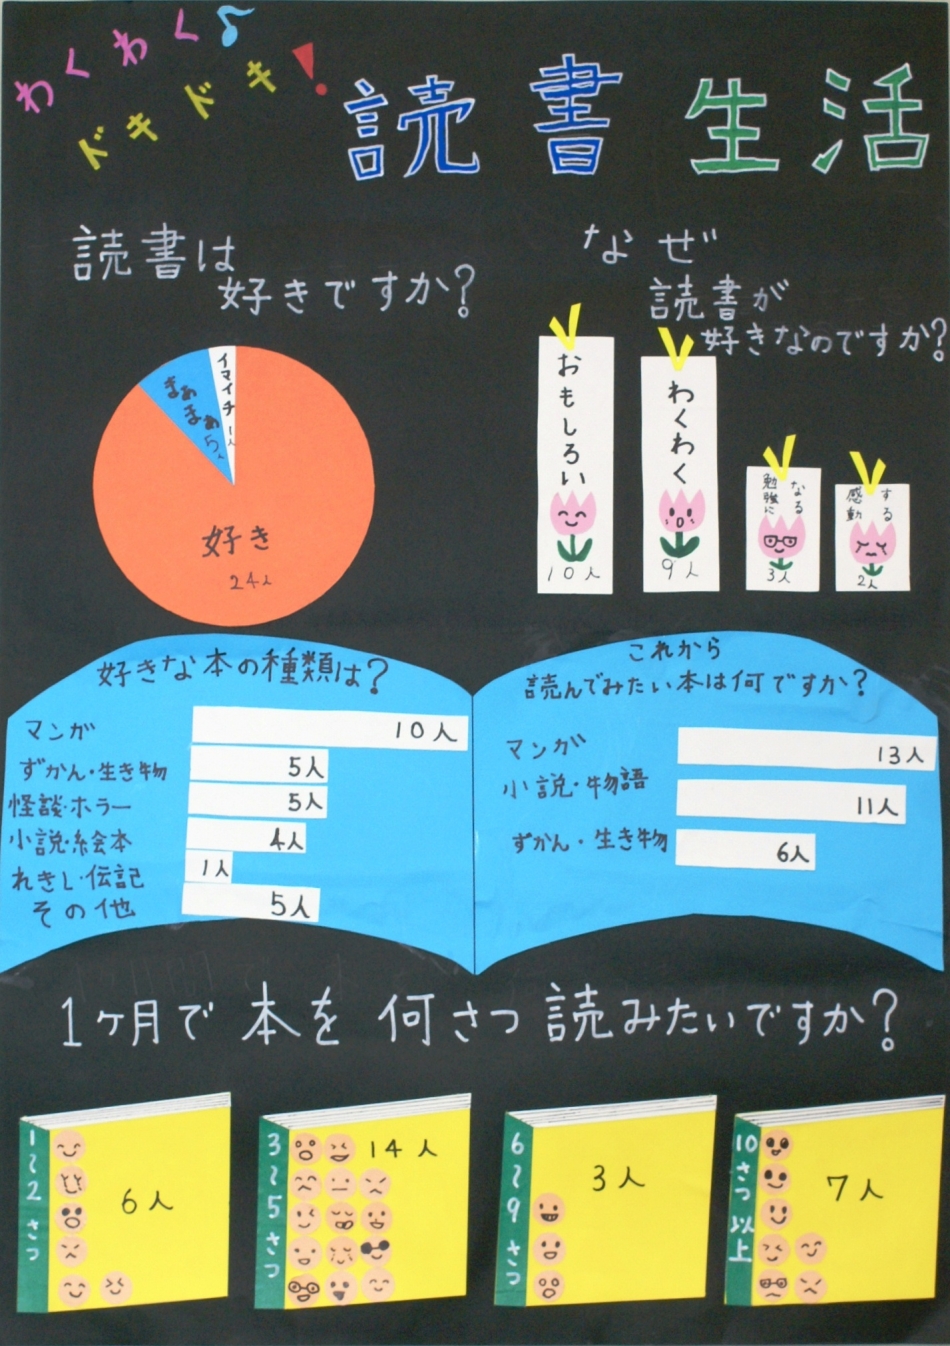 わくわく♪
ドキドキ!
読書生活
読書は
好きですか?
イマイチ 1人
まぁまぁ 5人
好き
24人
なぜ
読書が
好きなのですか?
おもしろい
10人
わくわく
9人
勉強に
なる
3人
感動
する
2人
好きな本の種類は?
マンガ 10人
ずかん・生き物 5人
怪談・ホラー 5人
小説・絵本 4人
れきし・伝記 1人
その他 5人
これから
読んでみたい本は何ですか?
マンガ 13人
小説・物語 11人
ずかん・生き物 6人
1ヶ月で本を何さつ読みたいですか?
1〜2さつ
6人
3〜5さつ
14人
6〜9さつ
3人
10さつ以上
7人